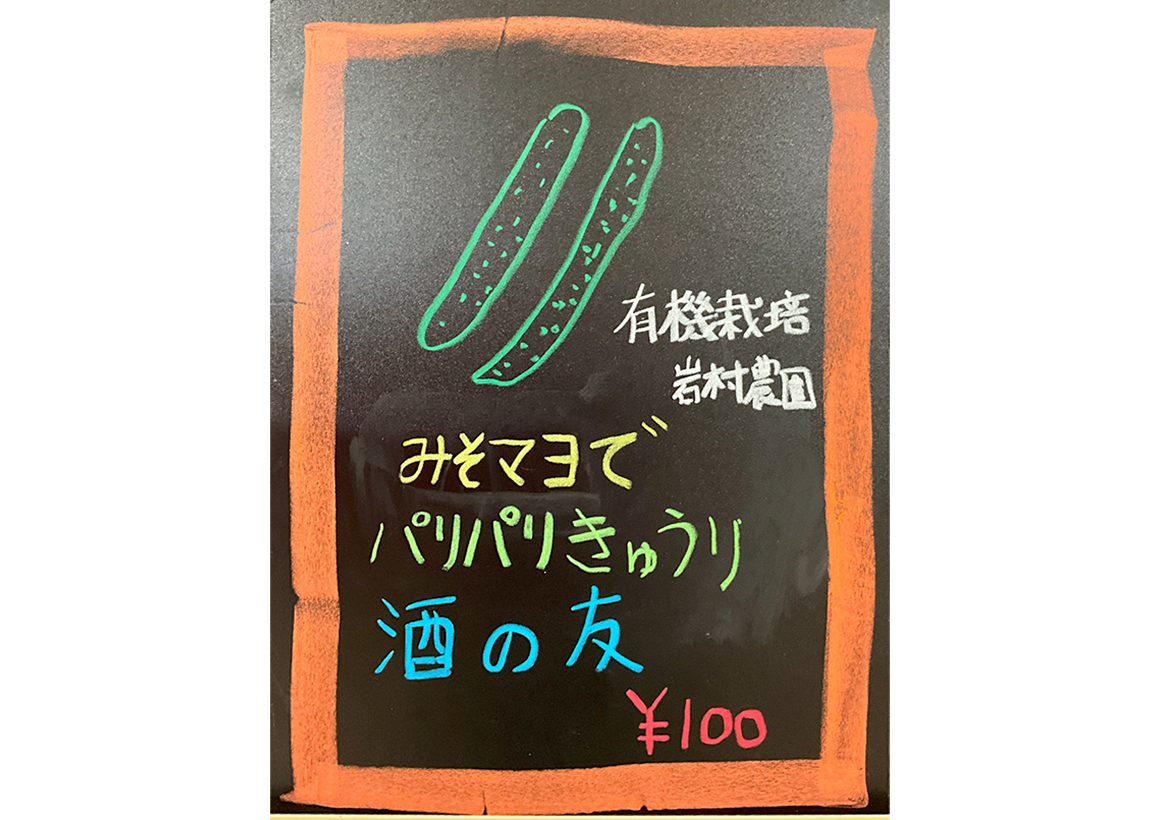 有機栽培
岩村農園
みそマヨで
パリパリきゅうり
酒の友
¥100